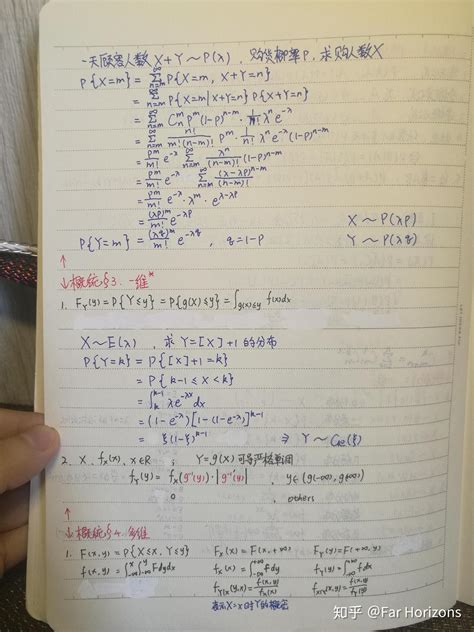 一天顾客人数 X+Y～P(λ), 购货概率P, 求购人数X
P{X=m} = ∑_{n=m}^{∞} P{X=m, X+Y=n}
= ∑_{n=m}^{∞} P{X=m|X+Y=n} P{X+Y=n}
= ∑_{n=m}^{∞} C_n^m P^m (1-P)^{n-m} · 1/n! λ^n e^{-λ}
= ∑_{n=m}^{∞} n!/(m!(n-m)!) P^m · 1/n! λ^n e^{-λ} (1-P)^{n-m}
= P^m/m! e^{-λ} ∑_{n=m}^{∞} λ^n/(n-m)! (1-P)^{n-m}
= P^m/m! e^{-λ} ∑_{n=m}^{∞} (λ-λP)^{n-m}/(n-m)!
= P^m/m! e^{-λ} · λ^m · e^{λ-λP}
= (λP)^m/m! e^{-λP} X～P(λP)
P{Y=m} = (λq)^m/m! e^{-λq}, q=1-P Y～P(λq)
↑
↓概统§3. 一维*
1. F_Y(y) = P{Y≤y} = P{g(X)≤y} = ∫_{g(x)≤y} f(x)dx
X～E(λ), 求 Y=[X]+1 的分布
P{Y=k} = P{[X]+1=k}
= P{k-1≤X<k}
= ∫_k^{k-1} λe^{-λx}dx
= (1-e^{-λ})[1-(1-e^{-λ})]^{k-1}
= ξ(1-ξ)^{k-1} ⇒ Y～Ge(ξ)
2. X, f_X(x), x∈R ; Y=g(X) 可导严格单调
f_Y(y) = f_X(g^{-1}(y))·|g^{-1}'(y)|, y∈(g(-∞), g(+∞))
0 , others
↑
↓概统§4. 多维
1. F(x,y) = P{X≤x, Y≤y} F_X(x) = F(x,+∞) F_Y(y) = F(+∞,y)
f(x,y) = ∫_{-∞}^{x}∫_{-∞}^{y} F dydx f_X(x) = ∫_{-∞}^{+∞} f dy f_Y(y) = ∫_{-∞}^{+∞} f dx
f_{Y|X}(y|x) = f(x,y)/f_X(x) f_{X|Y}(x|y) = f(x,y)/f_Y(y)
表示X=x时Y的概密
知乎 @Far Horizons